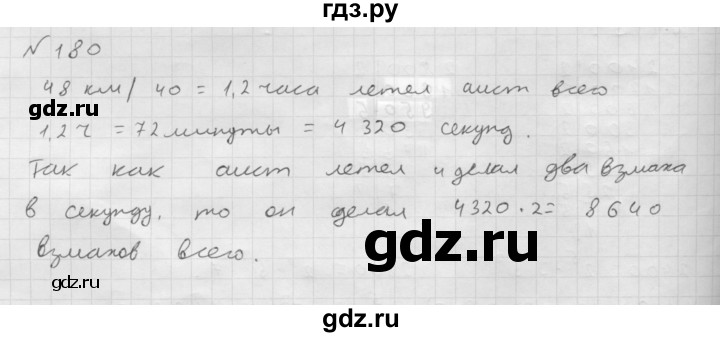 гдз.ру
№ 180
48 км / 40 = 1,2 часа летел аист всего
1,2 ч = 72 минуты = 4 320 секунд.
Так как аист летел и делал два взмаха
в секунду, то он делал 4320 · 2 = 8640
взмахов всего.
gdz.ru
gdz.ru